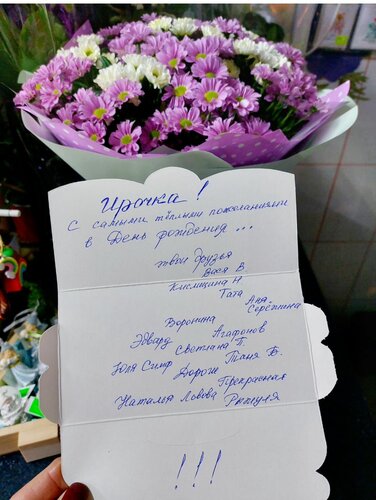 Ирочка!
С самыми тёплыми пожеланиями
в День рождения...
твои друзья
Вася В
Кислицина Н
Тата Аня
Серёгина
Воронина
Эдвард Агафонов
Светлана Г.
Юля Симф Дорош Таня Б.
Прекрасная
Наталья Львова Рыпуля
!!!